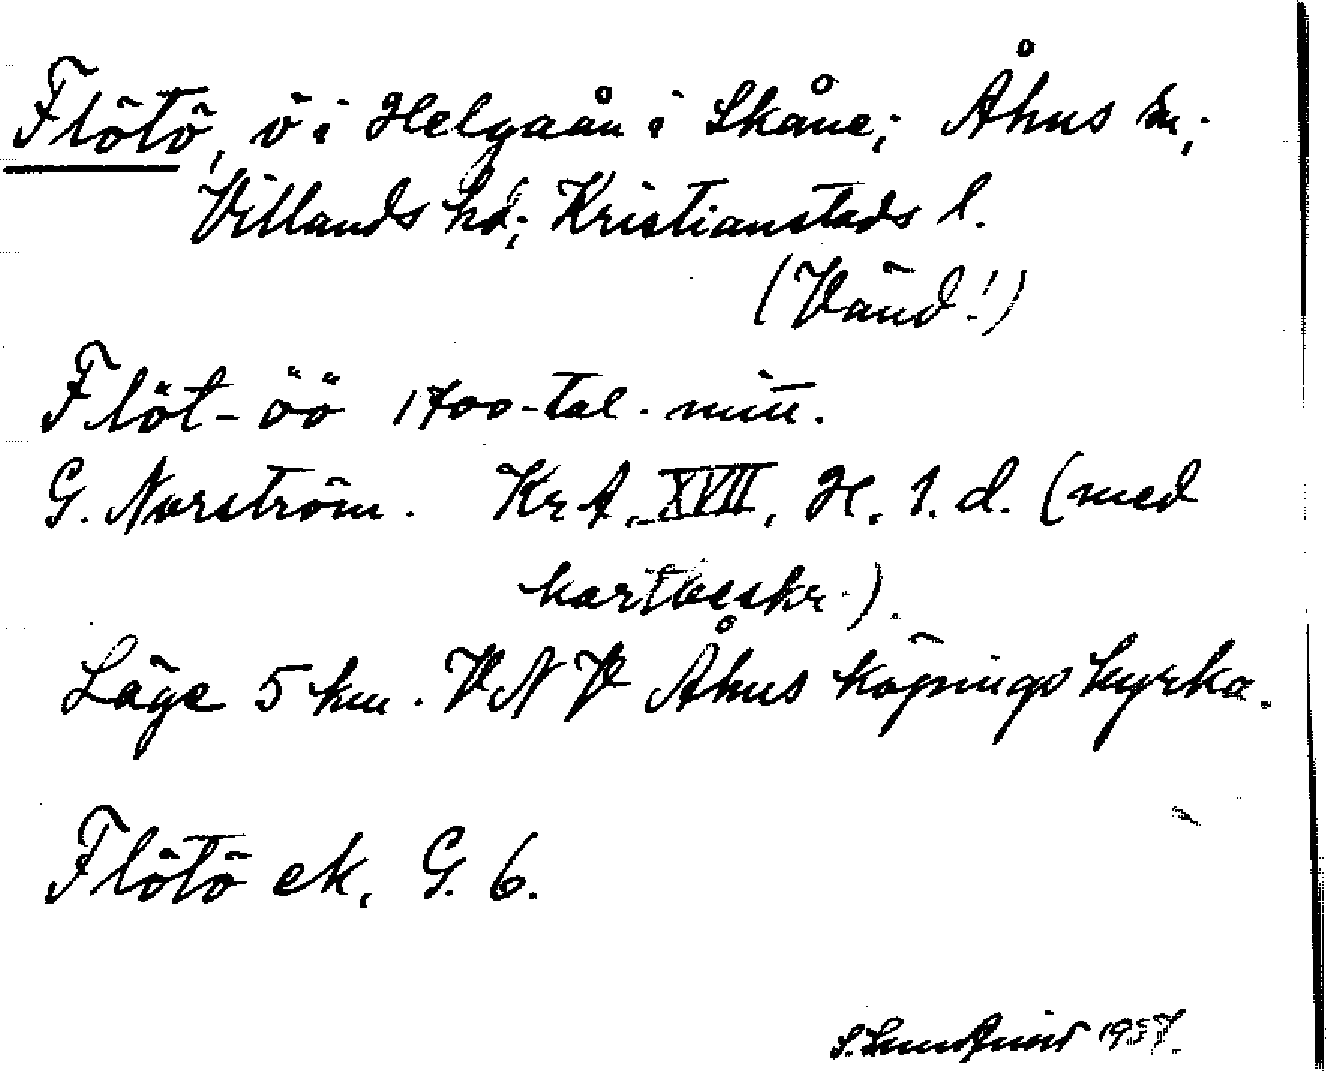 Flötö, ö i Helgaån i Skåne; Åhus sn;
Villands hd; Kristianstads l.
(Vänd!)
Flöt-öö 1700-tal. mitt.
G. Norström. KrA. XVII, H. 1. d. (med
kartbeskr.).
Läge 5 km. VNV Åhus köpings kyrka.
Flötö ek. G. 6.
S. 1957.